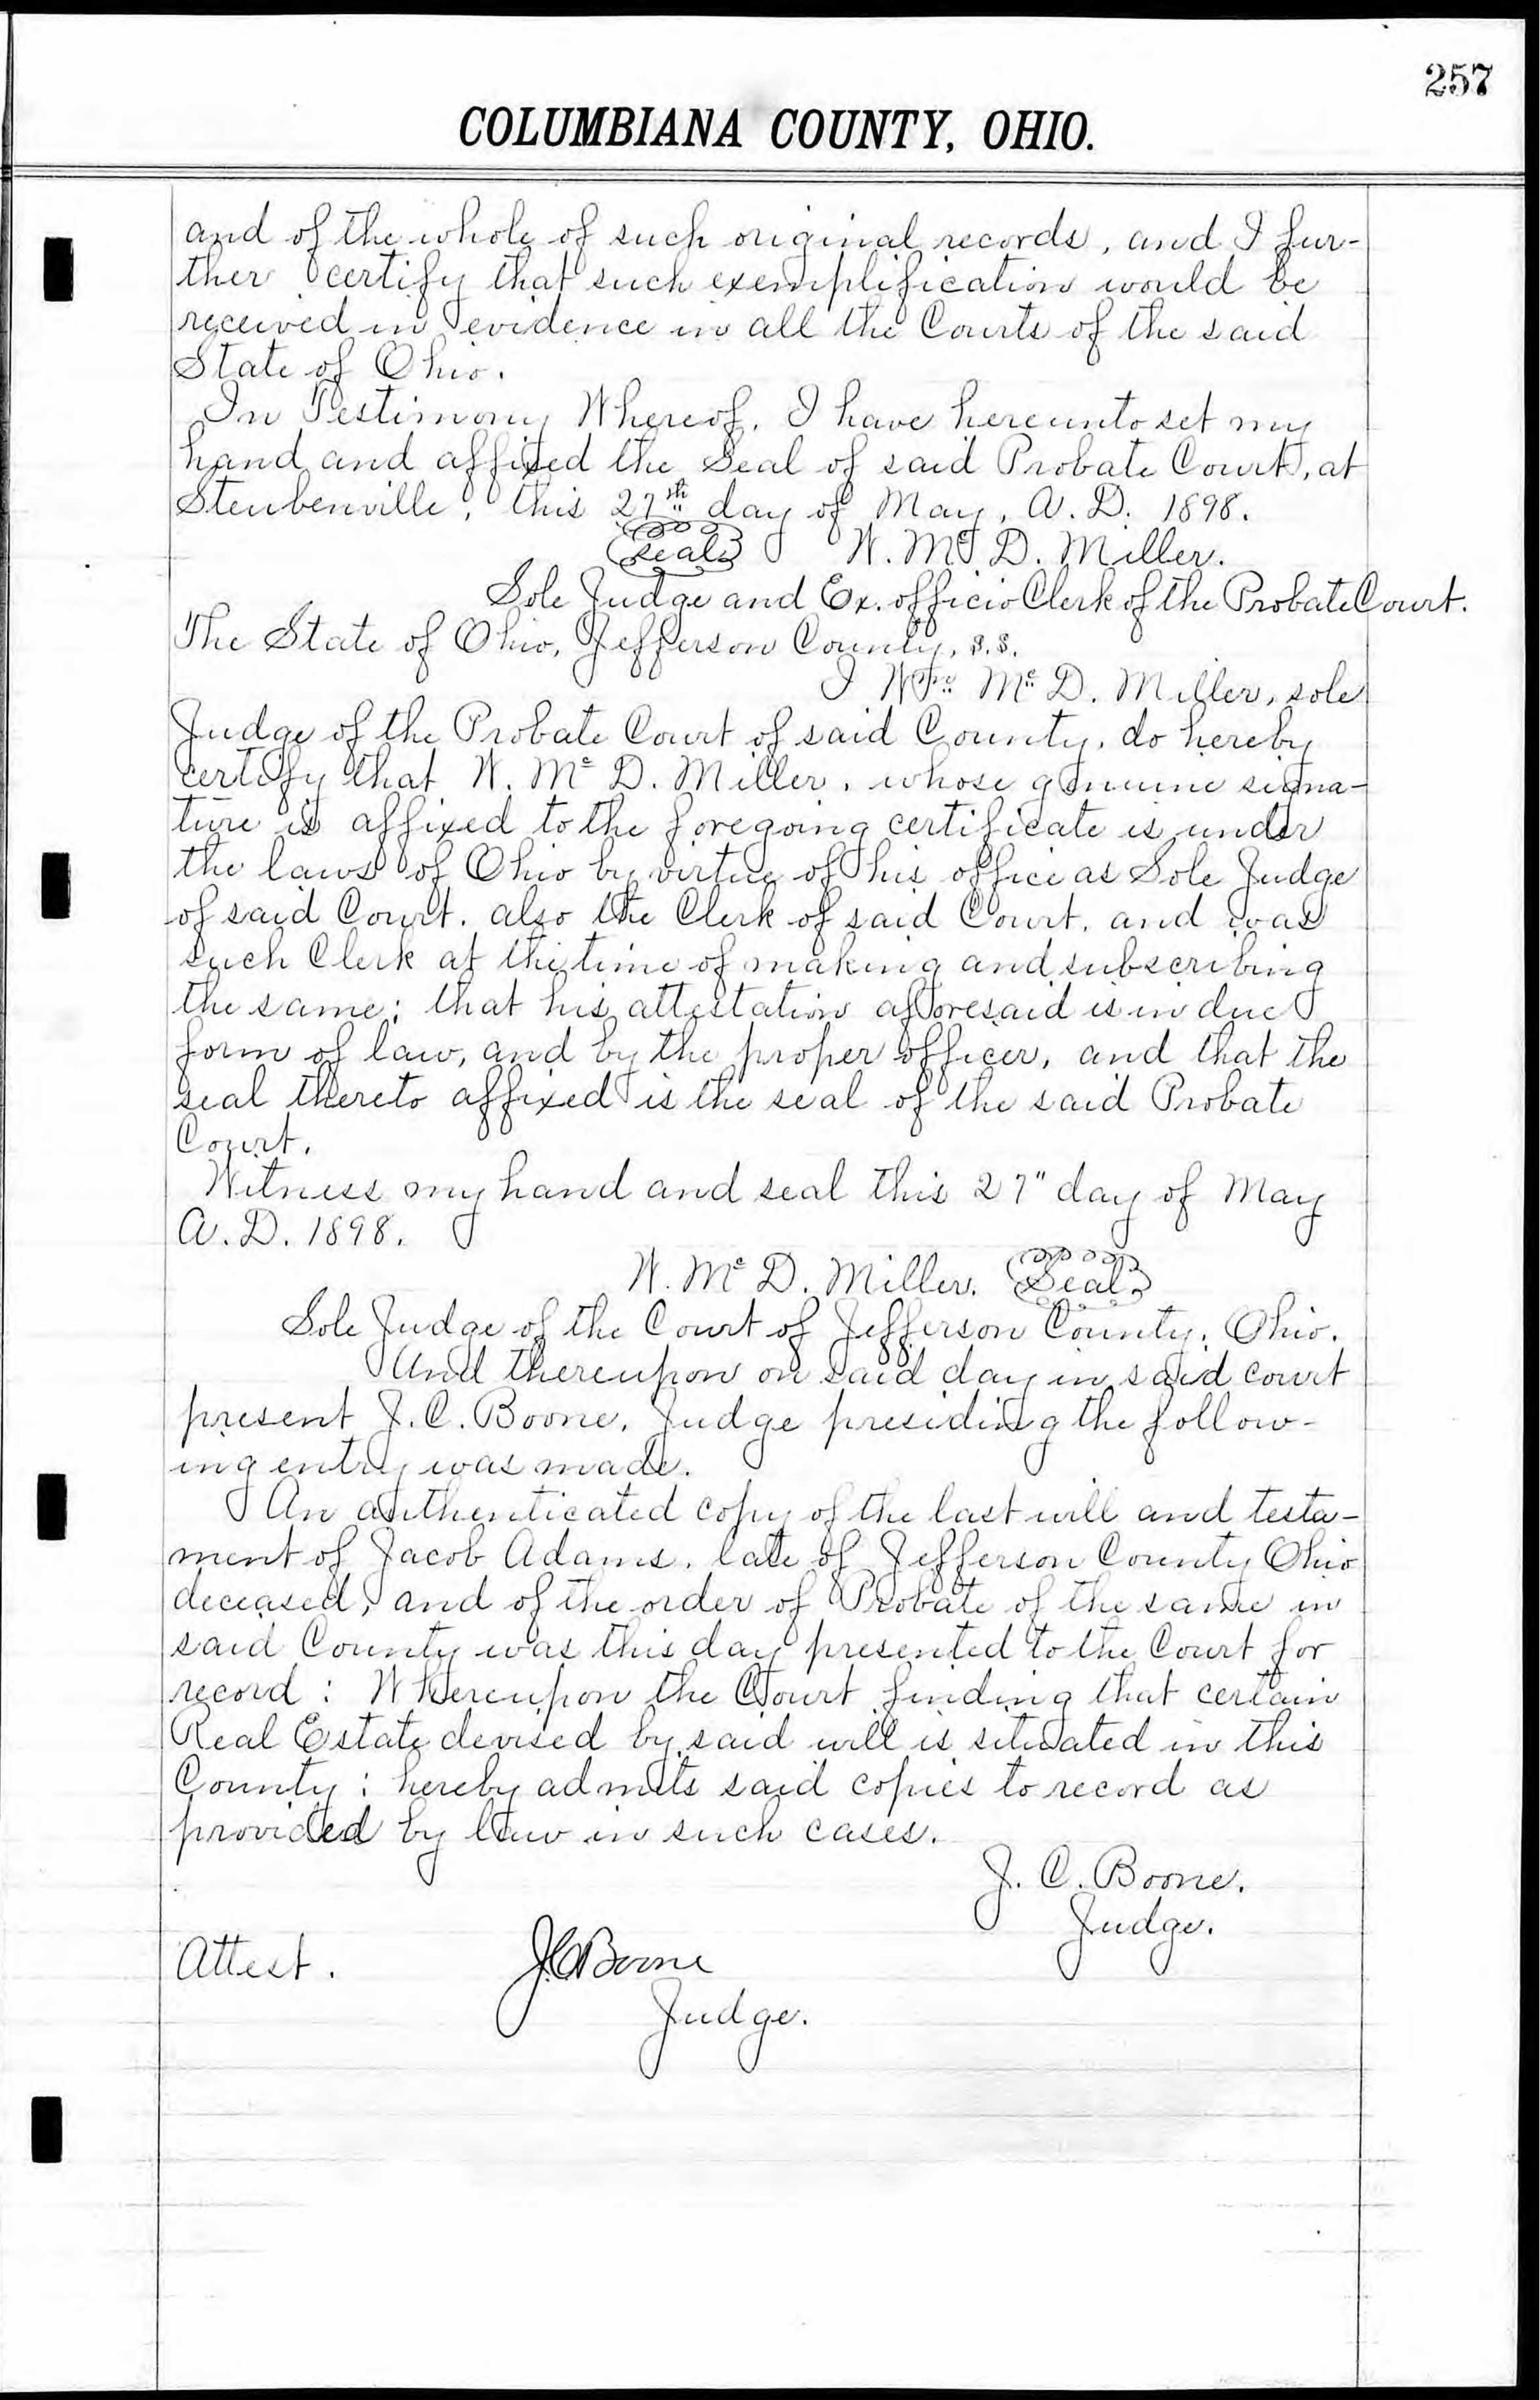 257
COLUMBIANA COUNTY, OHIO.
and of the whole of such original records, and I fur-
ther certify that such exemplification would be
received in evidence in all the Courts of the said
State of Ohio.
In Testimony Whereof, I have hereunto set my
hand and affixed the Seal of said Probate Court, at
Steubenville, this 27th day of May, A. D. 1898.
Seal W. Mc D. Miller.
Sole Judge and Ex. officio Clerk of the Probate Court.
The State of Ohio, Jefferson County, s.s.
I Wm Mc D. Miller, sole
Judge of the Probate Court of said County, do hereby
certify that W. Mc D. Miller, whose genuine signa-
ture is affixed to the foregoing certificate is under
the laws of Ohio by virtue of his office as Sole Judge
of said Court, also the Clerk of said Court, and was
such Clerk at the time of making and subscribing
the same; that his attestation aforesaid is in due
form of law, and by the proper officer, and that the
seal thereto affixed is the seal of the said Probate
Court.
Witness my hand and seal this 27" day of May
A. D. 1898.
W. Mc D. Miller. Seal
Sole Judge of the Court of Jefferson County, Ohio.
And thereupon on said day in said court
present J. C. Boone, Judge presiding the follow-
ing entry was made.
An authenticated copy of the last will and testa-
ment of Jacob Adams, late of Jefferson County Ohio
deceased, and of the order of Probate of the same in
said County was this day presented to the Court for
record: Whereupon the Court finding that certain
Real Estate devised by said will is situated in this
County; hereby admits said copies to record as
provided by law in such cases.
J. C. Boone.
Judge.
Attest. J.C. Boone
Judge.